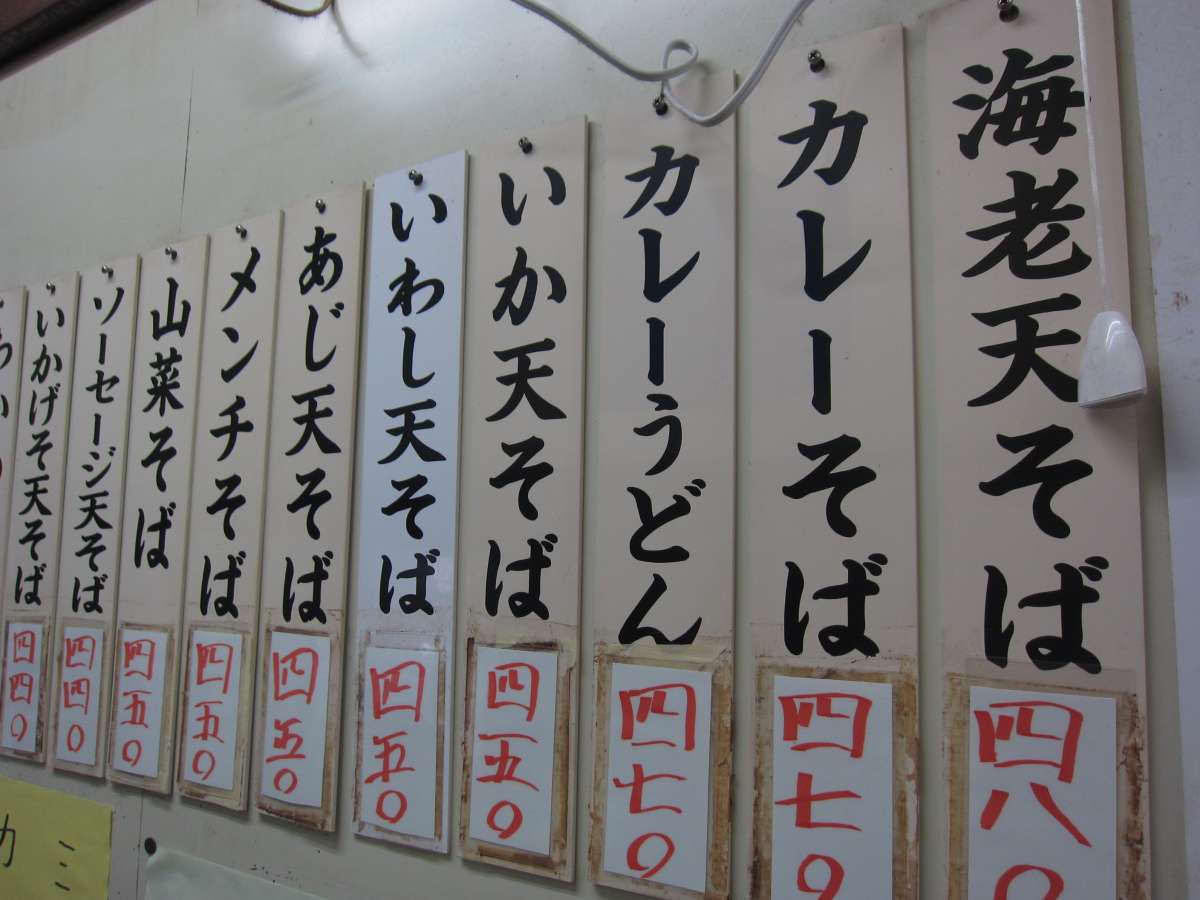 海老天そば
四八〇
カレーそば
四七〇
カレーうどん
四七〇
いか天そば
四五〇
いわし天そば
四五〇
あじ天そば
四五〇
メンチそば
四五〇
山菜そば
四五〇
ソーセージ天そば
四四〇
いかげそ天そば
四四〇
カミ